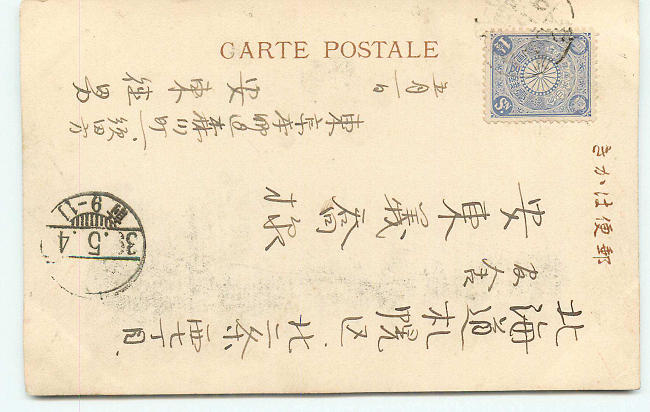 CARTE POSTALE
郵便はかき
北海道札幌区北二条西七丁目
安東義喬様
東京本郷区森川町一
安東
五月一日
5.4
前9-11
1½ Sn.